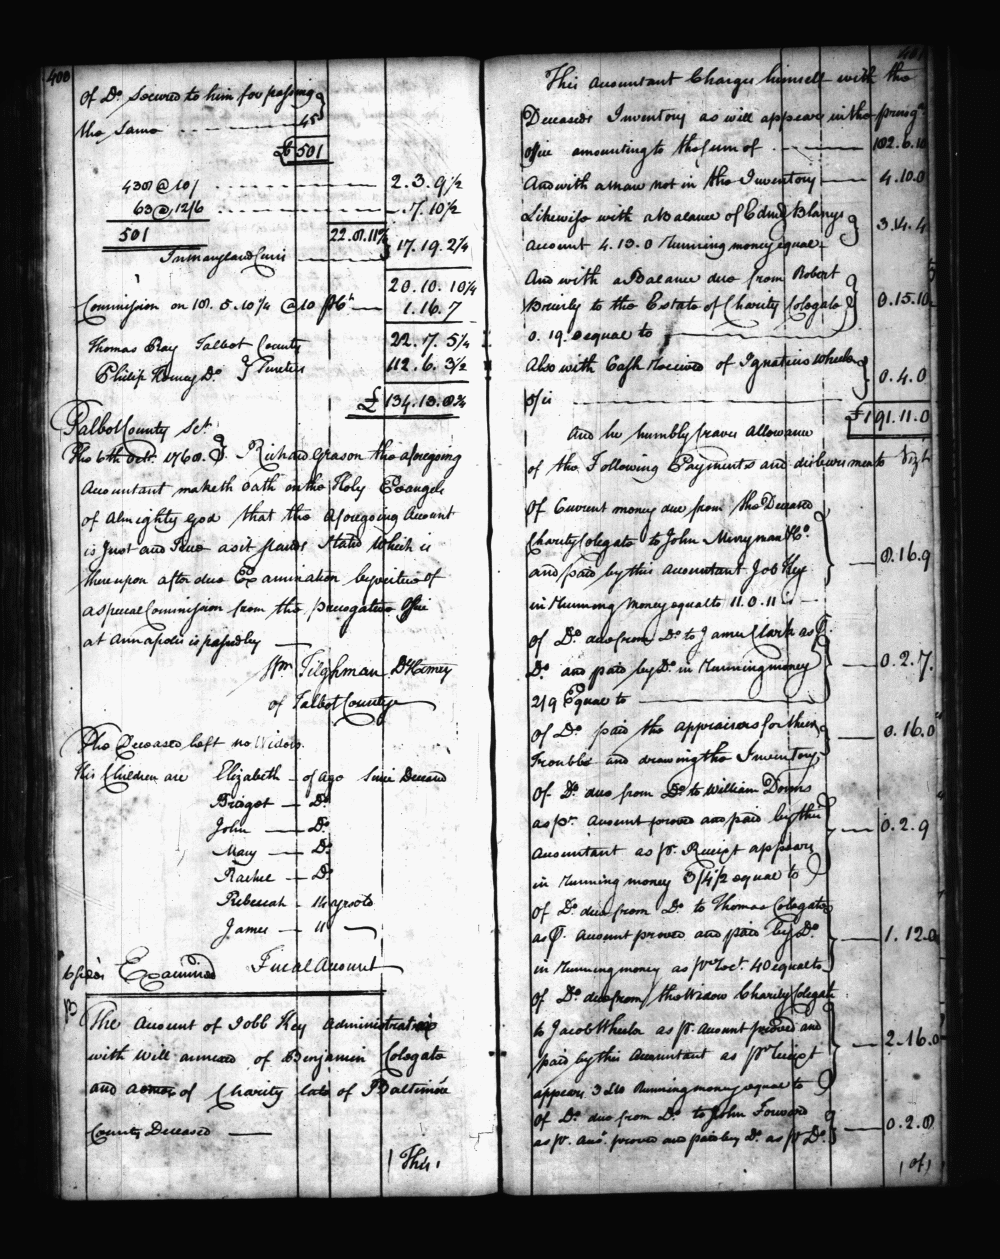 400
Of Do. Secured to him for passing
the Same 45
£ 501
438 @ 10/ 2.3.9½
63 @ 12/6 7.10½
501 22.8.11½ 17.19.2¼
In Maryland Curr
20.10.10¼
Commission on 18.5.10¼ @ 10 p Ct 1.16.7
22.7.5¼
Thomas Ray Talbot County
Philip Do. } Sureties 112.6.3½
£ 134.13.8¾
Talbot County Sct
The 6th Octr. 1760. Richard Grason the aforegoing
Accountant maketh oath on the Holy Evangels
of Almighty God that the Aforegoing Account
is Just and True as it stands Stated which is
thereupon after due Examination by virtue of
a special Commission from the prerogative Office
at Annapolis is passed by
Wm Tilghman Dy Comry
of Talbot County
The Deceased left no Widow
His Children are Elizabeth - of age Since Deceasd
Bridget - Do
John - Do
Mary - Do
Rachel - Do
Rebeccah - 14 yrs old
James - 11
Examined Final Account
The Account of Jobb Key Administrator
with Will annexed of Benjamin Colegate
and of Charity late of Baltimore
County Deceased
This
401
This Accountant Charges himself with the
Deceaseds Inventory as will appear in the prerog
Office amounting to the sum of 182.6.10
And with a mare not in the Inventory 4.10.0
Likewise with a Balance of Edmd Blanys
Account 4.13.0 Running money equal 3.14.4
And with a Balance due from Robert
Brierly to the Estate of Charity Colegate 0.15.10
0.19. equal to
Also with Cash Received of Ignatius Wheeler
0.4.0
£ 191.11.0
And he humbly Craves Allowance
of the Following Payments and disbursments Vizt
Of Current money due from the Deceased
Charity Colegate to John Merryman
and paid by this Accountant Job Key 8.16.9
in Running Money equal to 11.0.11
Of Do. due from Do. to James Clark as P.
Do. and paid by Do. in Running money 0.2.7.
2/9 Equal to
Of Do. paid the appraisers for their 0.16.0
Troubles and drawing the Inventory
Of Do. due from Do. to William Downs
as pr. Account proved and paid by this
Accountant as p. Receipt appears 0.2.9
in Running money 3/4½ equal to
Of Do. due from Do. to Thomas Colegate
as P. Account proved and paid by Do. 1.12.0
in Running money as pr Rect. 40 equal to
Of Do. due from the Widow Charity Colegate
to Jacob Wheeler as p. Account proved and
paid by this Accountant as pr Receipt 2.16.0
appears 3.10 Running money equal to
Of Do. due from Do. to John Forward
as pr. Acct. proved and paid by Do. as pr Do. 0.2.8
of